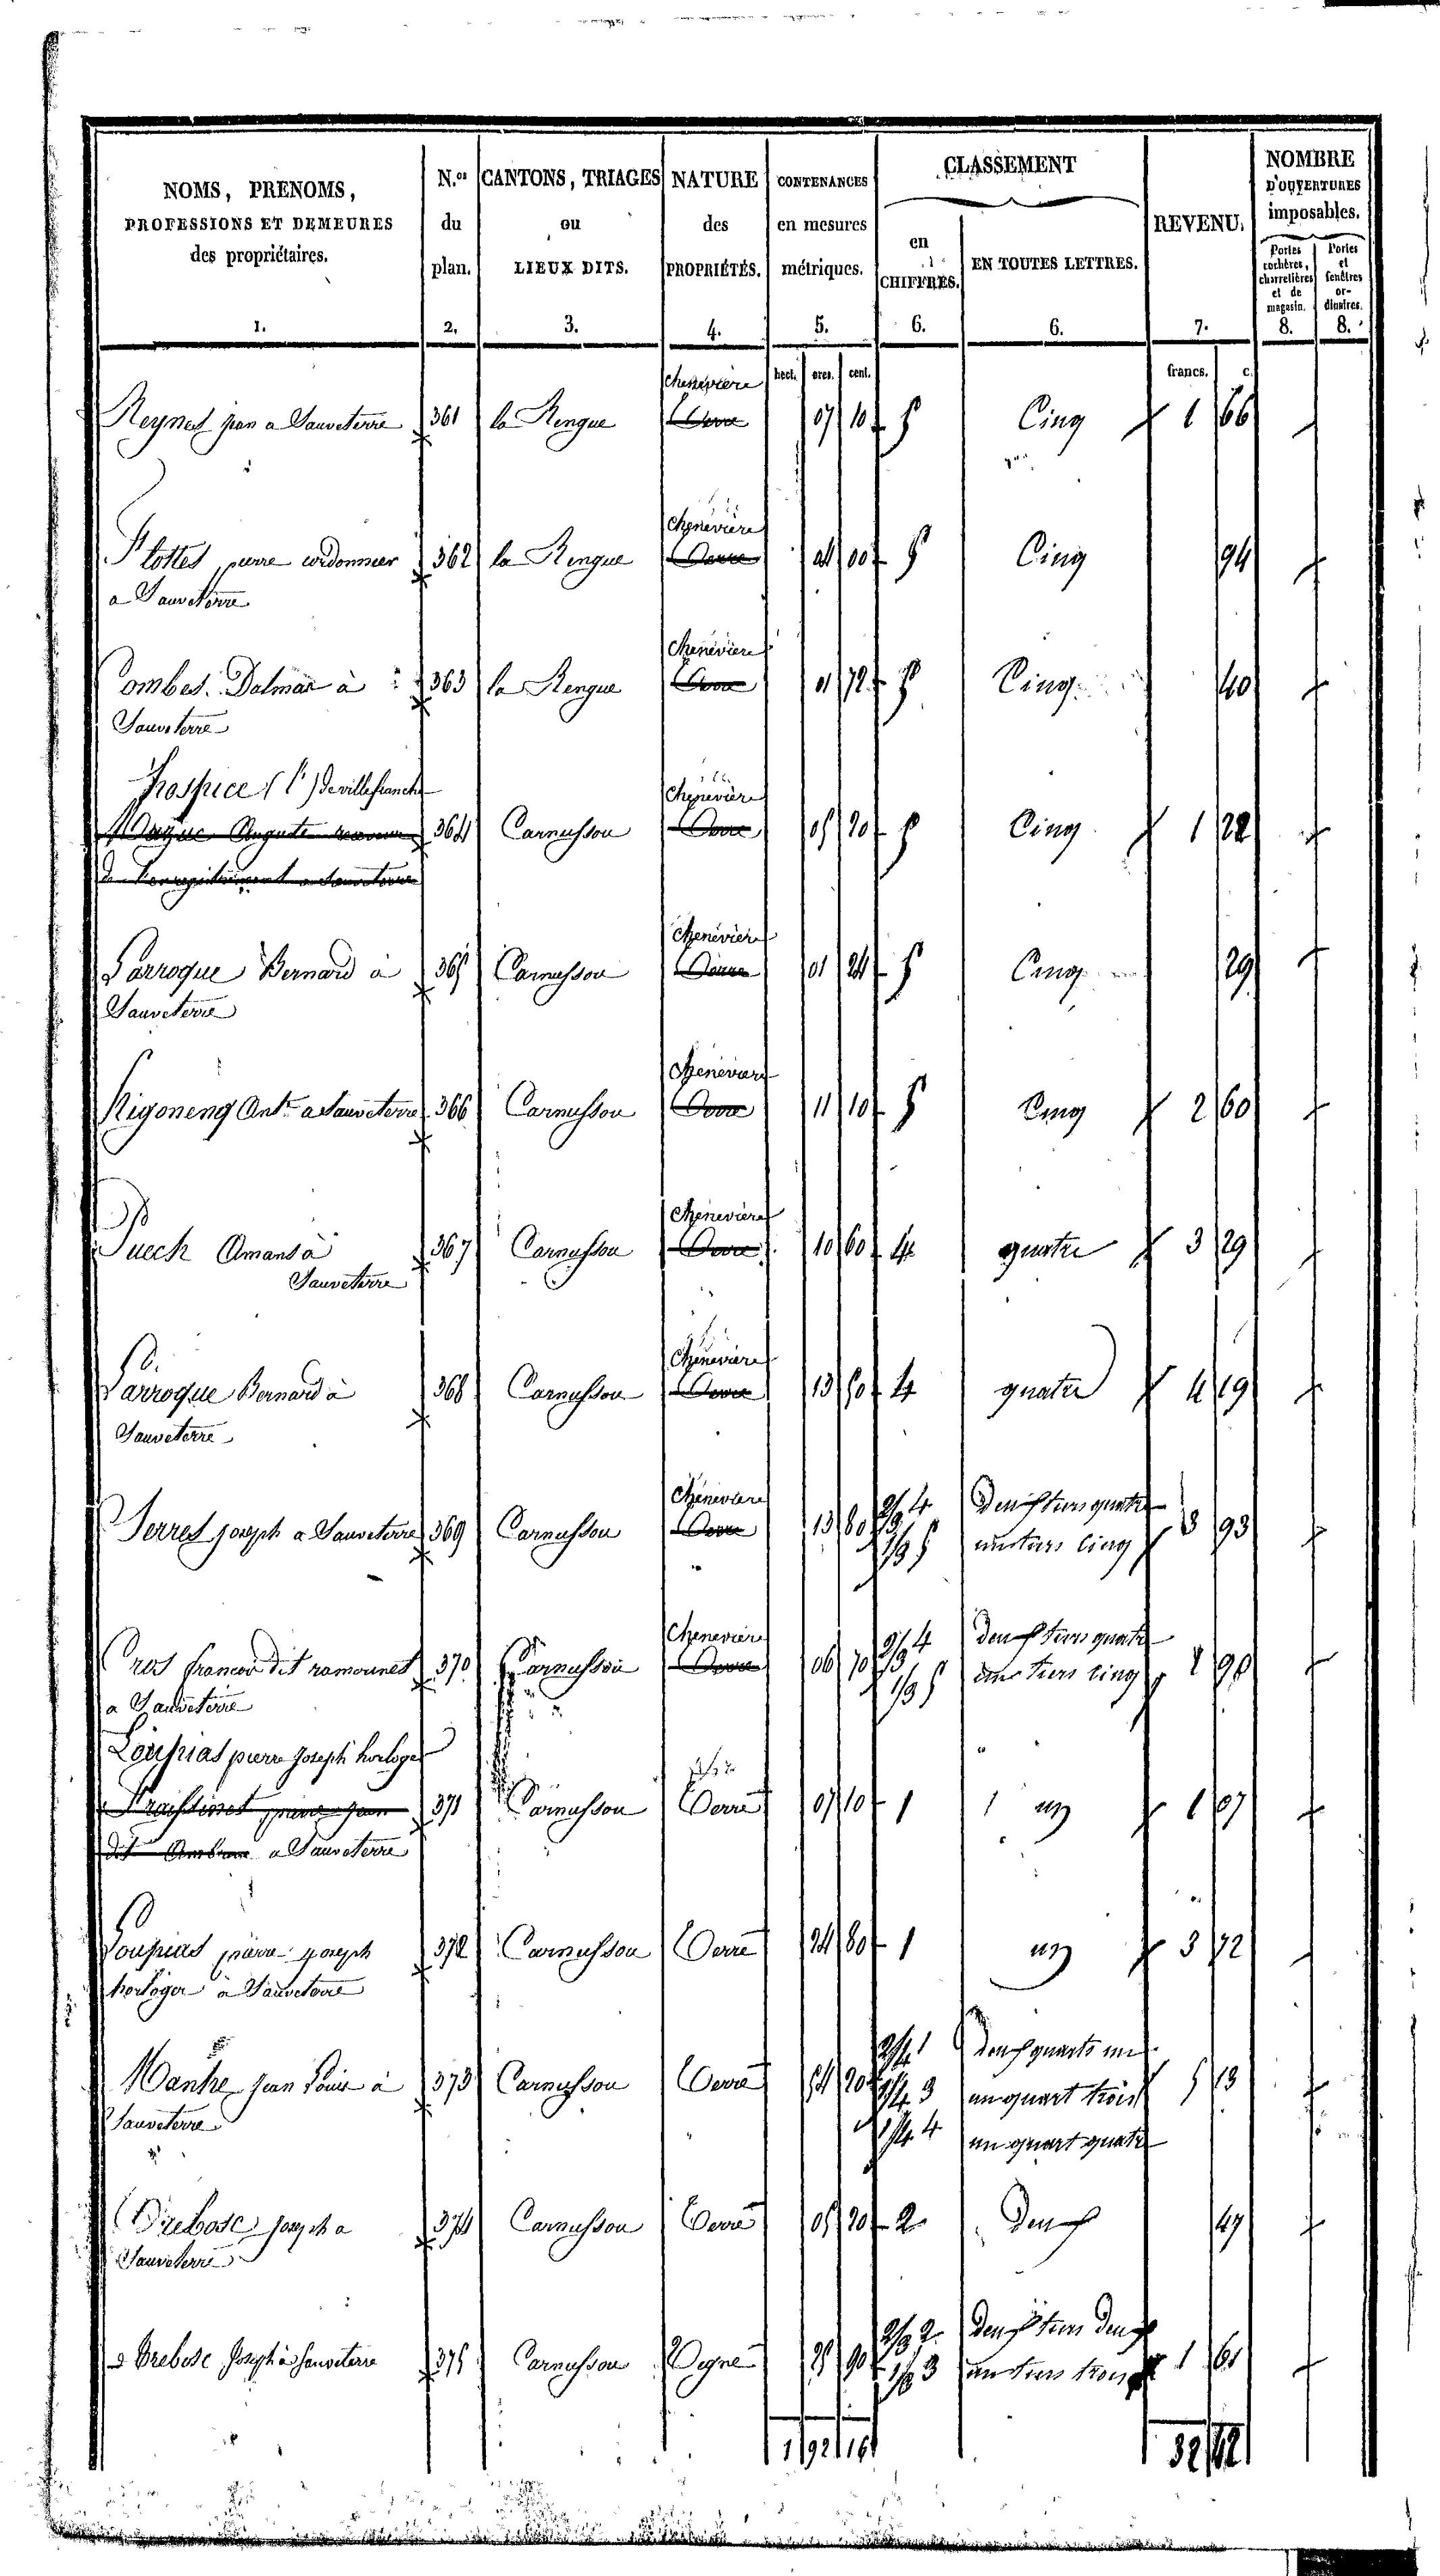 NOMS, PRENOMS, PROFESSIONS ET DEMEURES des propriétaires. N.os du plan. CANTONS, TRIAGES ou LIEUX DITS. NATURE des PROPRIÉTÉS. CONTENANCES en mesures métriques. CLASSEMENT en CHIFFRES. EN TOUTES LETTRES. REVENU. NOMBRE D'OUVERTURES imposables. Portes cochères, charretières et de magasin. Portes et fenêtres ordinaires.
1. 2. 3. 4. 5. 6. 6. 7. 8. 8.
hect. ares. cent. francs. c.
Chenevière
jean a Sauveterre 361 la Rengue Terre 07 10 5 Cinq 1 66
Chenevière
Flottes pierre cordonnier 362 la Rengue Terre 04 00 5 Cinq 94
a Sauveterre
Chenevière
Combes Dalmar à 363 la Rengue Terre 01 72 5 Cinq 40
Sauveterre
hospice (l') de villefranche Chenevière
Auguste 364 Carnusson Terre 05 20 5 Cinq 1 22
de l'enregistrement a Sauveterre
Chenevière
Larroque Bernard à 365 Carnusson Terre 01 24 5 Cinq 29
Sauveterre
Chenevière
Ant.e a Sauveterre 366 Carnusson Terre 11 10 5 Cinq 2 60
Chenevière
Puech Amans à 367 Carnusson Terre 10 60 4 quatre 3 29
Sauveterre
Chenevière
Larroque Bernard à 368 Carnusson Terre 13 50 4 quatre 4 19
Sauveterre
Chenevière 2/3 4 Deux tiers quatre
Serres joseph a Sauveterre 369 Carnusson Terre 13 80 1/3 5 un tiers Cinq 3 93
Chenevière 2/3 4 Deux tiers quatre
Cros francois dit ramounet 370 Carnusson Terre 06 70 1/3 5 un tiers Cinq 1 90
a Sauveterre
Loupias pierre joseph horloger
Fraissinet pierre jean 371 Carnusson Terre 07 10 1 un 1 07
dit a Sauveterre
Loupias pierre joseph 372 Carnusson Terre 24 80 1 un 3 72
horloger à Sauveterre
2/4 1 deux quarts un
jean Louis à 373 Carnusson Terre 54 20 1/4 3 un quart trois 5 13
Sauveterre 1/4 4 un quart quatre
Trebosc joseph a 374 Carnusson Terre 05 20 2 Deux 47
Sauveterre
2/3 2 Deux tiers Deux
Trebosc Joseph à Sauveterre 375 Carnusson Vigne 25 90 1/3 3 un tiers trois 1 61
1 92 16 32 42